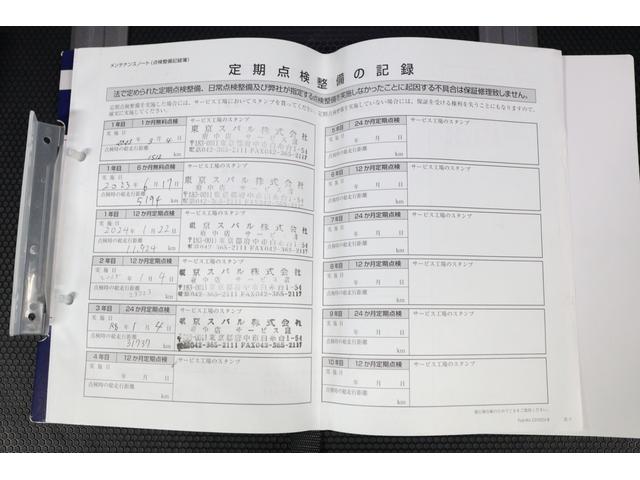 メンテナンスノート(点検整備記録簿)
定期点検整備の記録
法で定められた定期点検整備、日常点検整備及び弊社が指定する点検整備を実施しなかったことに起因する不具合は保証修理致しません。
定期点検整備を実施した場合には、サービス工場においてスタンプを貰ってください。
確実に実施してください。
1年目 1か月無料点検 サービス工場のスタンプ
実施日
2023年3月4日
点検時の総走行距離
1512 km
東京スバル株式会社
府中店 サービス課
〒183-0011東京都府中市白糸台1-54
042-365-2111 FAX042-365-2117
1年目 6か月無料点検 サービス工場のスタンプ
実施日
2023年6月17日
点検時の総走行距離
5194 km
東京スバル株式会社
府中店 サービス課
〒183-0011東京都府中市白糸台1-54
042-365-2111 FAX042-365-2117
1年目 12か月定期点検 サービス工場のスタンプ
実施日
2024年1月22日
点検時の総走行距離
11,924 km
東京スバル株式会社
府中店 サービス課
〒183-0011東京都府中市白糸台1-54
042-365-2111 FAX042-365-2117
2年目 12か月定期点検 サービス工場のスタンプ
実施日
年1月4日
点検時の総走行距離
km
東京スバル株式会社
府中店 サービス課
〒183-0011東京都府中市白糸台1-54
042-365-2111 FAX042-365-2117
3年目 24か月定期点検 サービス工場のスタンプ
実施日
R8年1月4日
点検時の総走行距離
31737 km
東京スバル株式会社
府中店 サービス課
〒183-0011東京都府中市白糸台1-54
042-365-2111 FAX042-365-2117
4年目 12か月定期点検 サービス工場のスタンプ
実施日
年 月 日
点検時の総走行距離
km
5年目 24か月定期点検 サービス工場のスタンプ
実施日
年 月 日
点検時の総走行距離
km
6年目 12か月定期点検 サービス工場のスタンプ
実施日
年 月 日
点検時の総走行距離
km
7年目 24か月定期点検 サービス工場のスタンプ
実施日
年 月 日
点検時の総走行距離
km
8年目 12か月定期点検 サービス工場のスタンプ
実施日
年 月 日
点検時の総走行距離
km
9年目 24か月定期点検 サービス工場のスタンプ
実施日
年 月 日
点検時の総走行距離
km
10年目 12か月定期点検 サービス工場のスタンプ
実施日
年 月 日
点検時の総走行距離
km